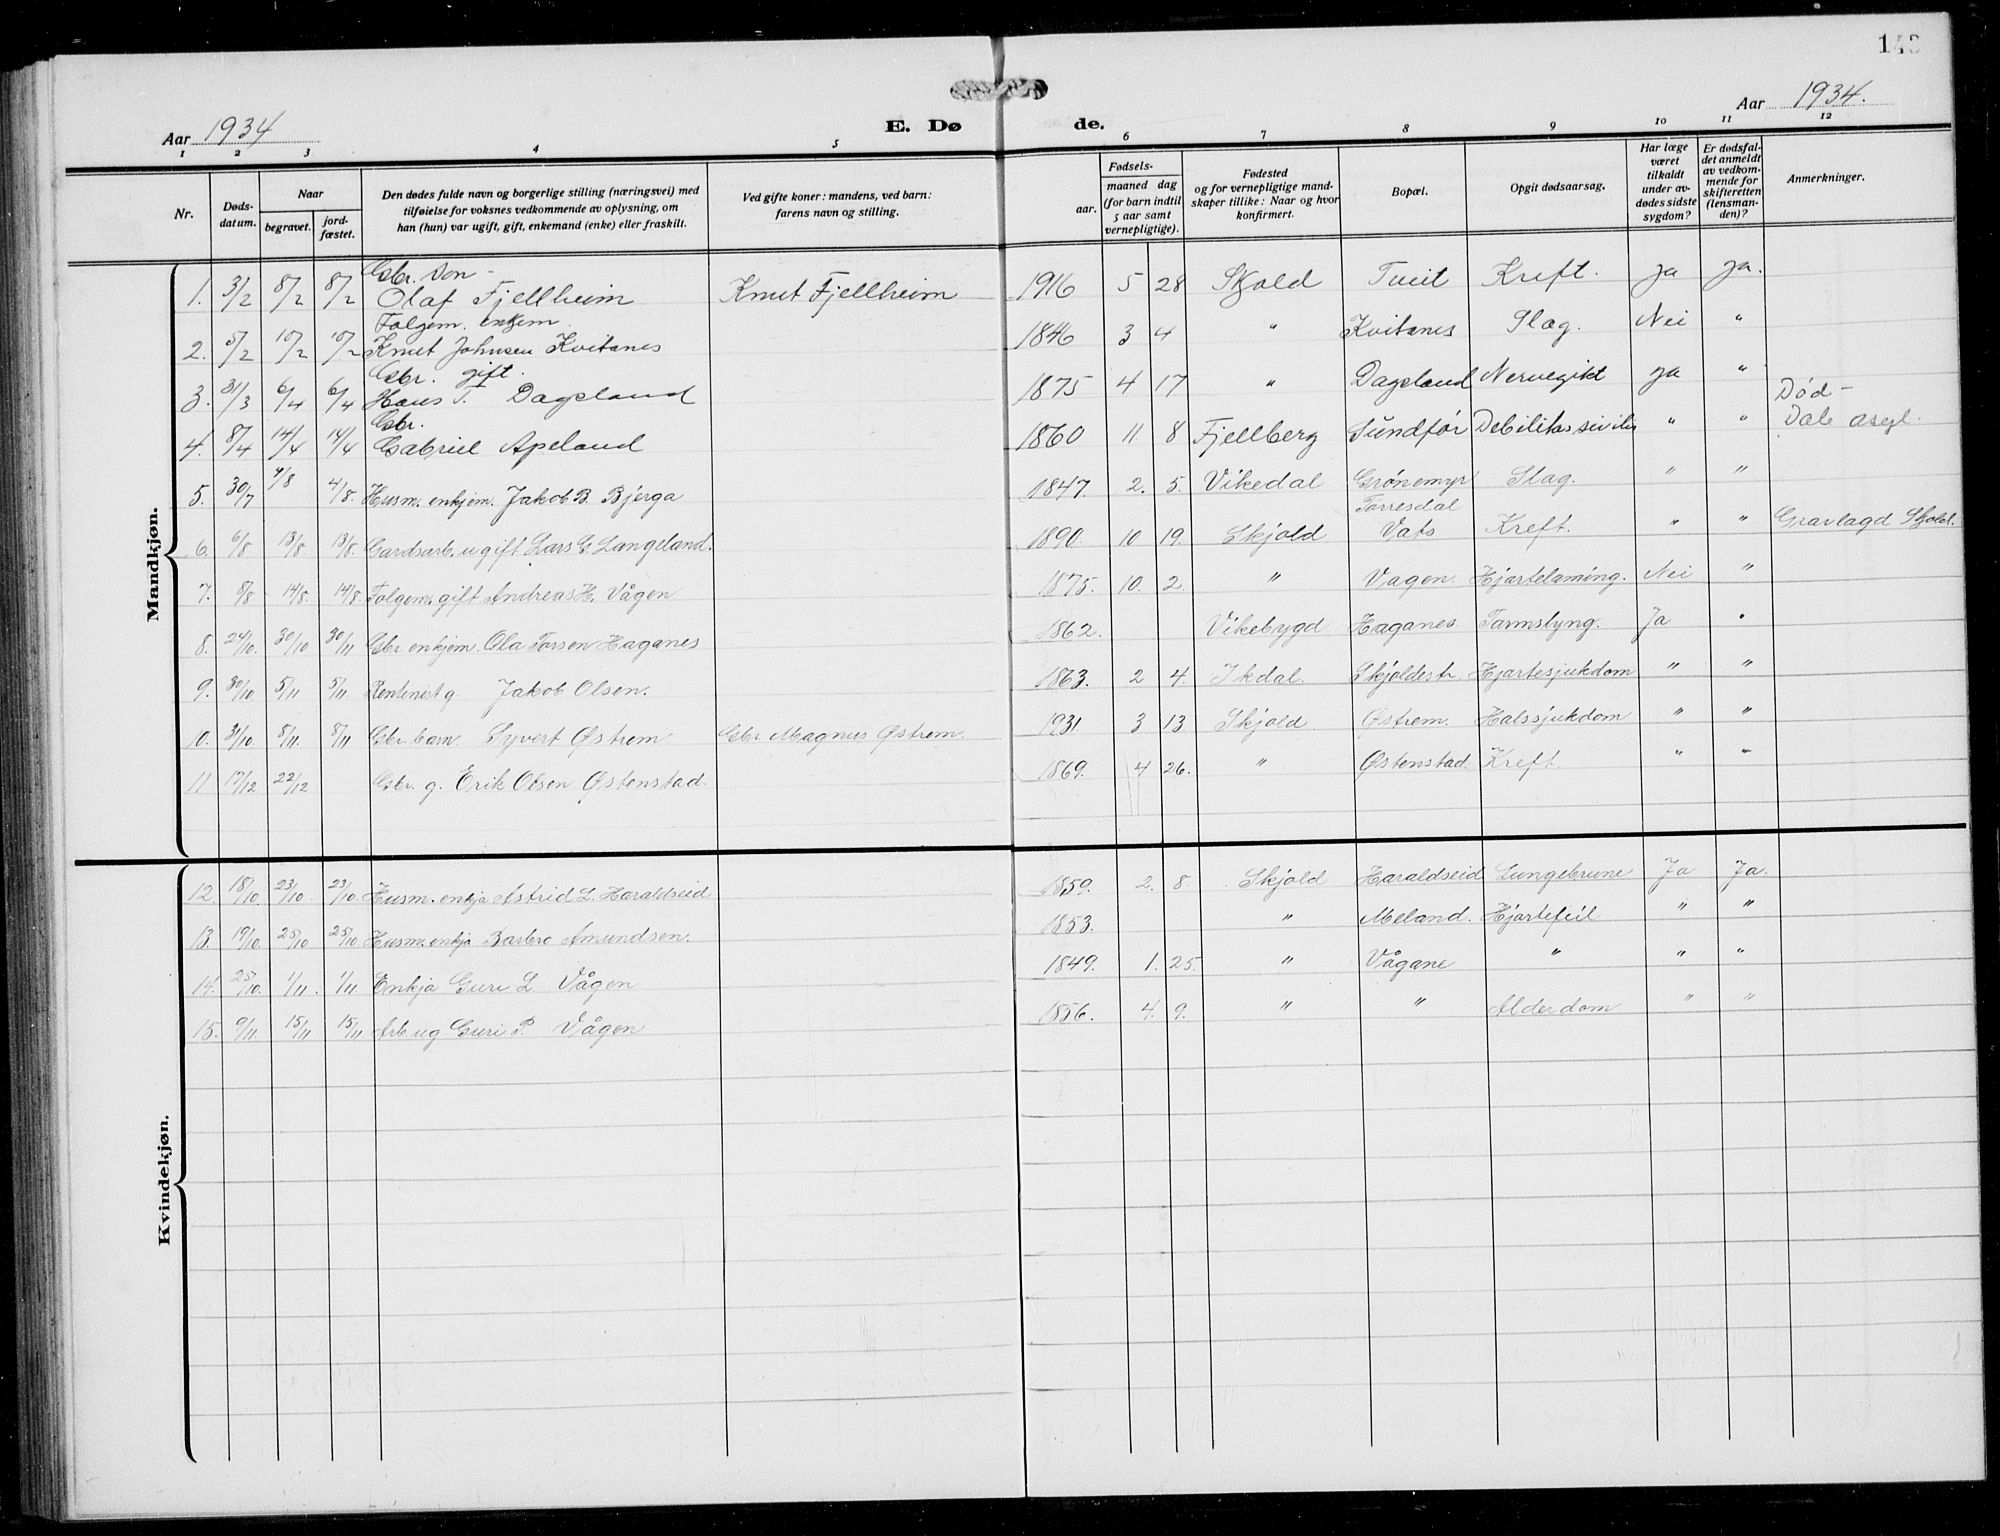 143
Aar 1934
E. Dø
de.
Aar 1934.
1 2 3 4 5 6 7 8 9 10 11 12
Nr.
Døds-
datum.
Naar
begravet.
jord-
fæstet.
Den dødes fulde navn og borgerlige stilling (næringsvei) med
tilføielse for voksnes vedkommende av oplysning, om
han (hun) var ugift, gift, enkemand (enke) eller fraskilt.
Ved gifte koner: mandens, ved barn:
farens navn og stilling.
Fødsels-
aar.
maaned dag
(for barn indtil
5 aar samt
vernepligtige).
Fødested
og for vernepligtige mand-
skaper tillike: Naar og hvor
konfirmert.
Bopæl.
Opgit dødsaarsag.
Har læge
været
tilkaldt
under av-
dødes sidste
sygdom?
Er dødsfal-
det anmeldt
av vedkom-
mende for
skifteretten
(lensman-
den)?
Anmerkninger.
Mandkjøn.
Gbr. søn -
1. 3/2 8/2 8/2 Olaf Fjellheim Knut Fjellheim 1916 5 28 Skjold Tveit Kreft. ja ja.
Folgem. enkem.
2. 5/2 10/2 10/2 Knut Johnsen Kvitanes 1846 3 4 " Kvitanes Slag. Nei "
Gbr. gift.
3. 31/3 6/4 6/4 Hans T. Dagsland 1875 4 17 " Dagsland Nervegikt ja "
Gbr.
4. 8/4 14/4 14/4 Gabriel Apeland 1860 11 8 Fjellberg Sundfør Debilitas senilis " " Død - Dale asyl.
5. 30/7 4/8 4/8. Husm. enkjem. Jakob B. Bjerga 1847. 2. 5. Vikedal Grønemyr Slag. " "
6. 6/8 13/8 13/8. Gardsarb. ugift Lars G. Langeland. 1890. 10 19. Skjold Torresdal Vats Kreft. " " Gravlagd Skjold.
7. 8/8 14/8. 14/8. Folgem. gift Andreas H. Vågen 1875. 10. 2. " Vagen. Hjartelaming. Nei "
8. 24/10. 30/10 30/11 Gbr. enkjem. Ola Torsen Haganes 1862. Vikebygd Haganes. Tarmslyng. Ja "
9. 30/10 5/11 5/11 Rentenist g. Jakob Olsen. 1863. 2 4. Ikdal. Skjoldestr. Hjartesjukdom " "
10. 31/10. 8/11. 8/11 Gbr. barn. Syvert Østrem Gbr Magnus Østrem. 1931 3 13 Skjold Østrem. Halssjukdom " "
11 17/12. 22/12 Gbr. g. Erik Olsen Østenstad. 1869. 4 26. " Østenstad. Kreft. " "
Kvindekjøn.
12. 18/10. 23/10. 23/10. Husm. enkja Astrid L. Haraldseid 1859. 2. 8. Skjold Haraldseid Lungebrune Ja Ja.
13. 19/10. 25/10 25/10. Husm. enkja Barbro Amundsen. 1853. " Meland. Hjartefeil " "
14. 25/10. 1/11. 1/11. Enkja Guri L. Vågen 1849. 1. 25. " Vågane " " "
15. 9/11. 15/11 15/11 Arb. ug Guri P. Vågen 1856. 4. 9. " " Alderdom " "